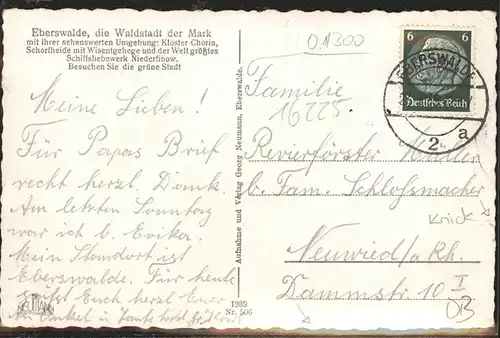 Eberswalde, die Waldstadt der Mark
mit ihrer sehenswerten Umgebung: Kloster Chorin,
Schorfheide mit Wisentgehege und der Welt größtes
Schiffshebewerk Niederfinow.
Besuchen Sie die grüne Stadt
Meine Lieben!
Für Papas Brief
recht herzl. Dank.
Am letzten Sonntag
war ich b. Erika.
Mein Standort ist
Eberswalde. Für heute
Euch herzl. Euer
Aufnahme und Verlag Georg Neumann, Eberswalde.
1939
Nr. 506
0.1300
6 6
Deutsches Reich
EBERSWALDE
2
a
Familie
16225
Revierförster
b. Fam. Schlossmacher
Knick
Neuwied/a. Rh.
Dammstr. 10 I